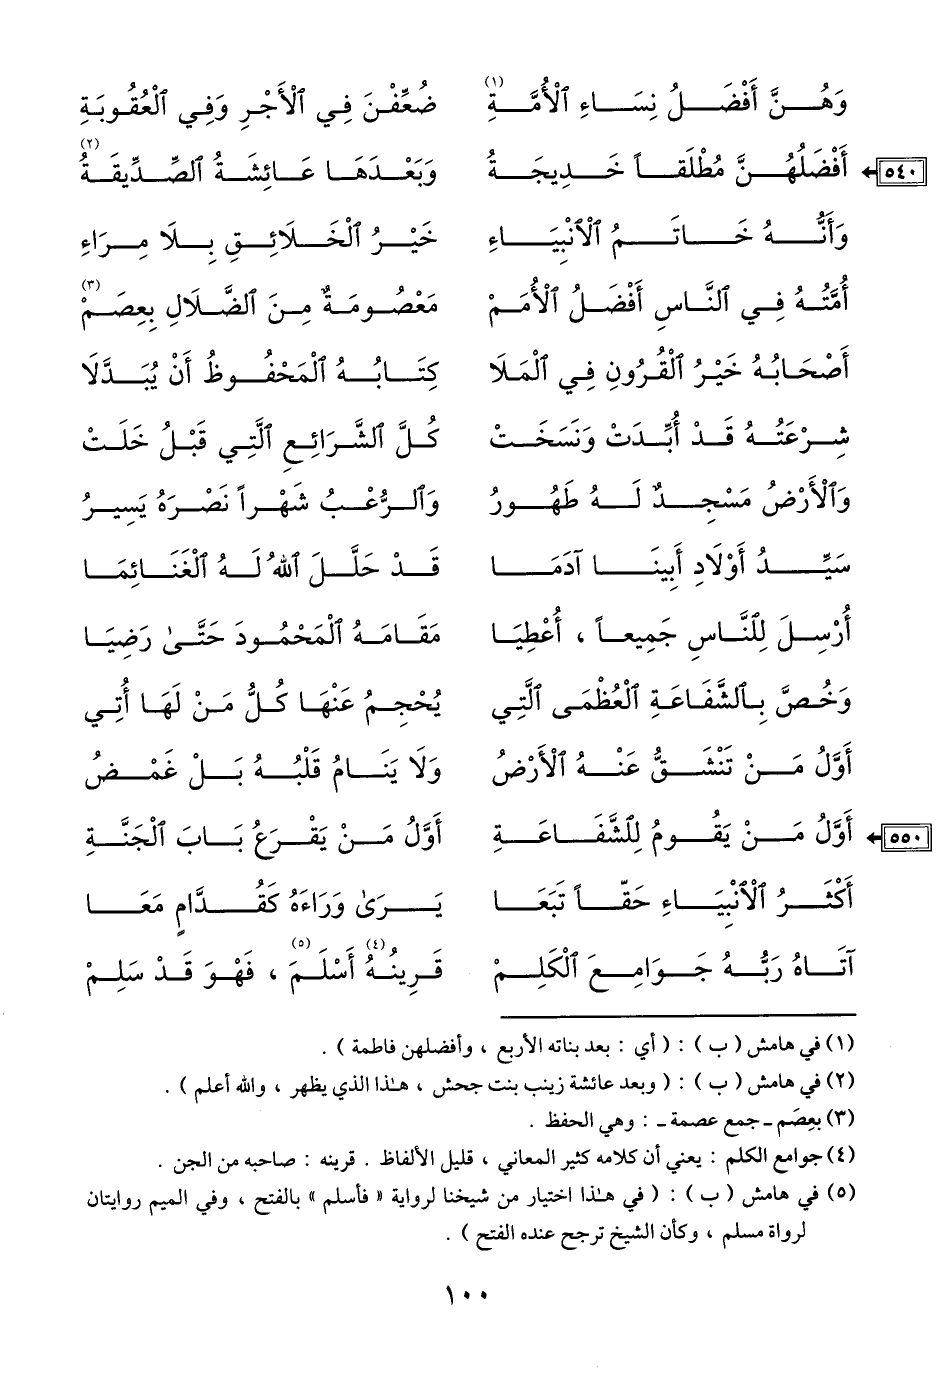 وَهُنَّ أَفْضَلُ نِسَاءِ ٱلْأُمَّةِ (١) ضُعِّفْنَ فِي ٱلْأَجْرِ وَفِي ٱلْعُقُوبَةِ
٥٤٠ أَفْضَلُهُنَّ مُطْلَقاً خَدِيجَةُ وَبَعْدَهَا عَائِشَةُ ٱلصِّدِّيقَةُ (٢)
وَأَنَّهُ خَاتَمُ ٱلْأَنْبِيَاءِ خَيْرُ ٱلْخَلَائِقِ بِلَا مِرَاءِ
أُمَّتُهُ فِي ٱلنَّاسِ أَفْضَلُ ٱلْأُمَمْ مَعْصُومَةٌ مِنَ ٱلضَّلَالِ بِعِصَمْ (٣)
أَصْحَابُهُ خَيْرُ ٱلْقُرُونِ فِي ٱلْمَلَا كِتَابُهُ ٱلْمَحْفُوظُ أَنْ يُبَدَّلَا
شِرْعَتُهُ قَدْ أُبِّدَتْ وَنَسَخَتْ كُلَّ ٱلشَّرَائِعِ ٱلَّتِي قَبْلُ خَلَتْ
وَٱلْأَرْضُ مَسْجِدٌ لَهُ طَهُورُ وَٱلرُّعْبُ شَهْراً نَصْرَهُ يَسِيرُ
سَيِّدُ أَوْلَادِ أَبِينَا آدَمَا قَدْ حَلَّلَ ٱللهُ لَهُ ٱلْغَنَائِمَا
أُرْسِلَ لِلنَّاسِ جَمِيعاً ، أُعْطِيَا مَقَامَهُ ٱلْمَحْمُودَ حَتَّىٰ رَضِيَا
وَخُصَّ بِٱلشَّفَاعَةِ ٱلْعُظْمَى ٱلَّتِي يُحْجِمُ عَنْهَا كُلُّ مَنْ لَهَا أُتِي
أَوَّلُ مَنْ تَنْشَقُّ عَنْهُ ٱلْأَرْضُ وَلَا يَنَامُ قَلْبُهُ بَلْ غَمْضُ
٥٥٠ أَوَّلُ مَنْ يَقُومُ لِلشَّفَاعَةِ أَوَّلُ مَنْ يَقْرَعُ بَابَ ٱلْجَنَّةِ
أَكْثَرُ ٱلْأَنْبِيَاءِ حَقّاً تَبَعَا يَرَىٰ وَرَاءَهُ كَقُدَّامٍ مَعَا
آتَاهُ رَبُّهُ جَوَامِعَ ٱلْكَلِمْ قَرِينُهُ (٤) أَسْلَمَ (٥) ، فَهْوَ قَدْ سَلِمْ
(١) في هامش ( ب ) : ( أي : بعد بناته الأربع ، وأفضلهن فاطمة ) .
(٢) في هامش ( ب ) : ( وبعد عائشة زينب بنت جحش ، هـٰذا الذي يظهر ، والله أعلم ) .
(٣) بعِصَم ـ جمع عصمة ـ : وهي الحفظ .
(٤) جوامع الكلم : يعني أن كلامه كثير المعاني ، قليل الألفاظ . قرينه : صاحبه من الجن .
(٥) في هامش ( ب ) : ( في هـٰذا اختيار من شيخنا لرواية « فأسلم » بالفتح ، وفي الميم روايتان
لرواة مسلم ، وكأن الشيخ ترجح عنده الفتح ) .
١٠٠